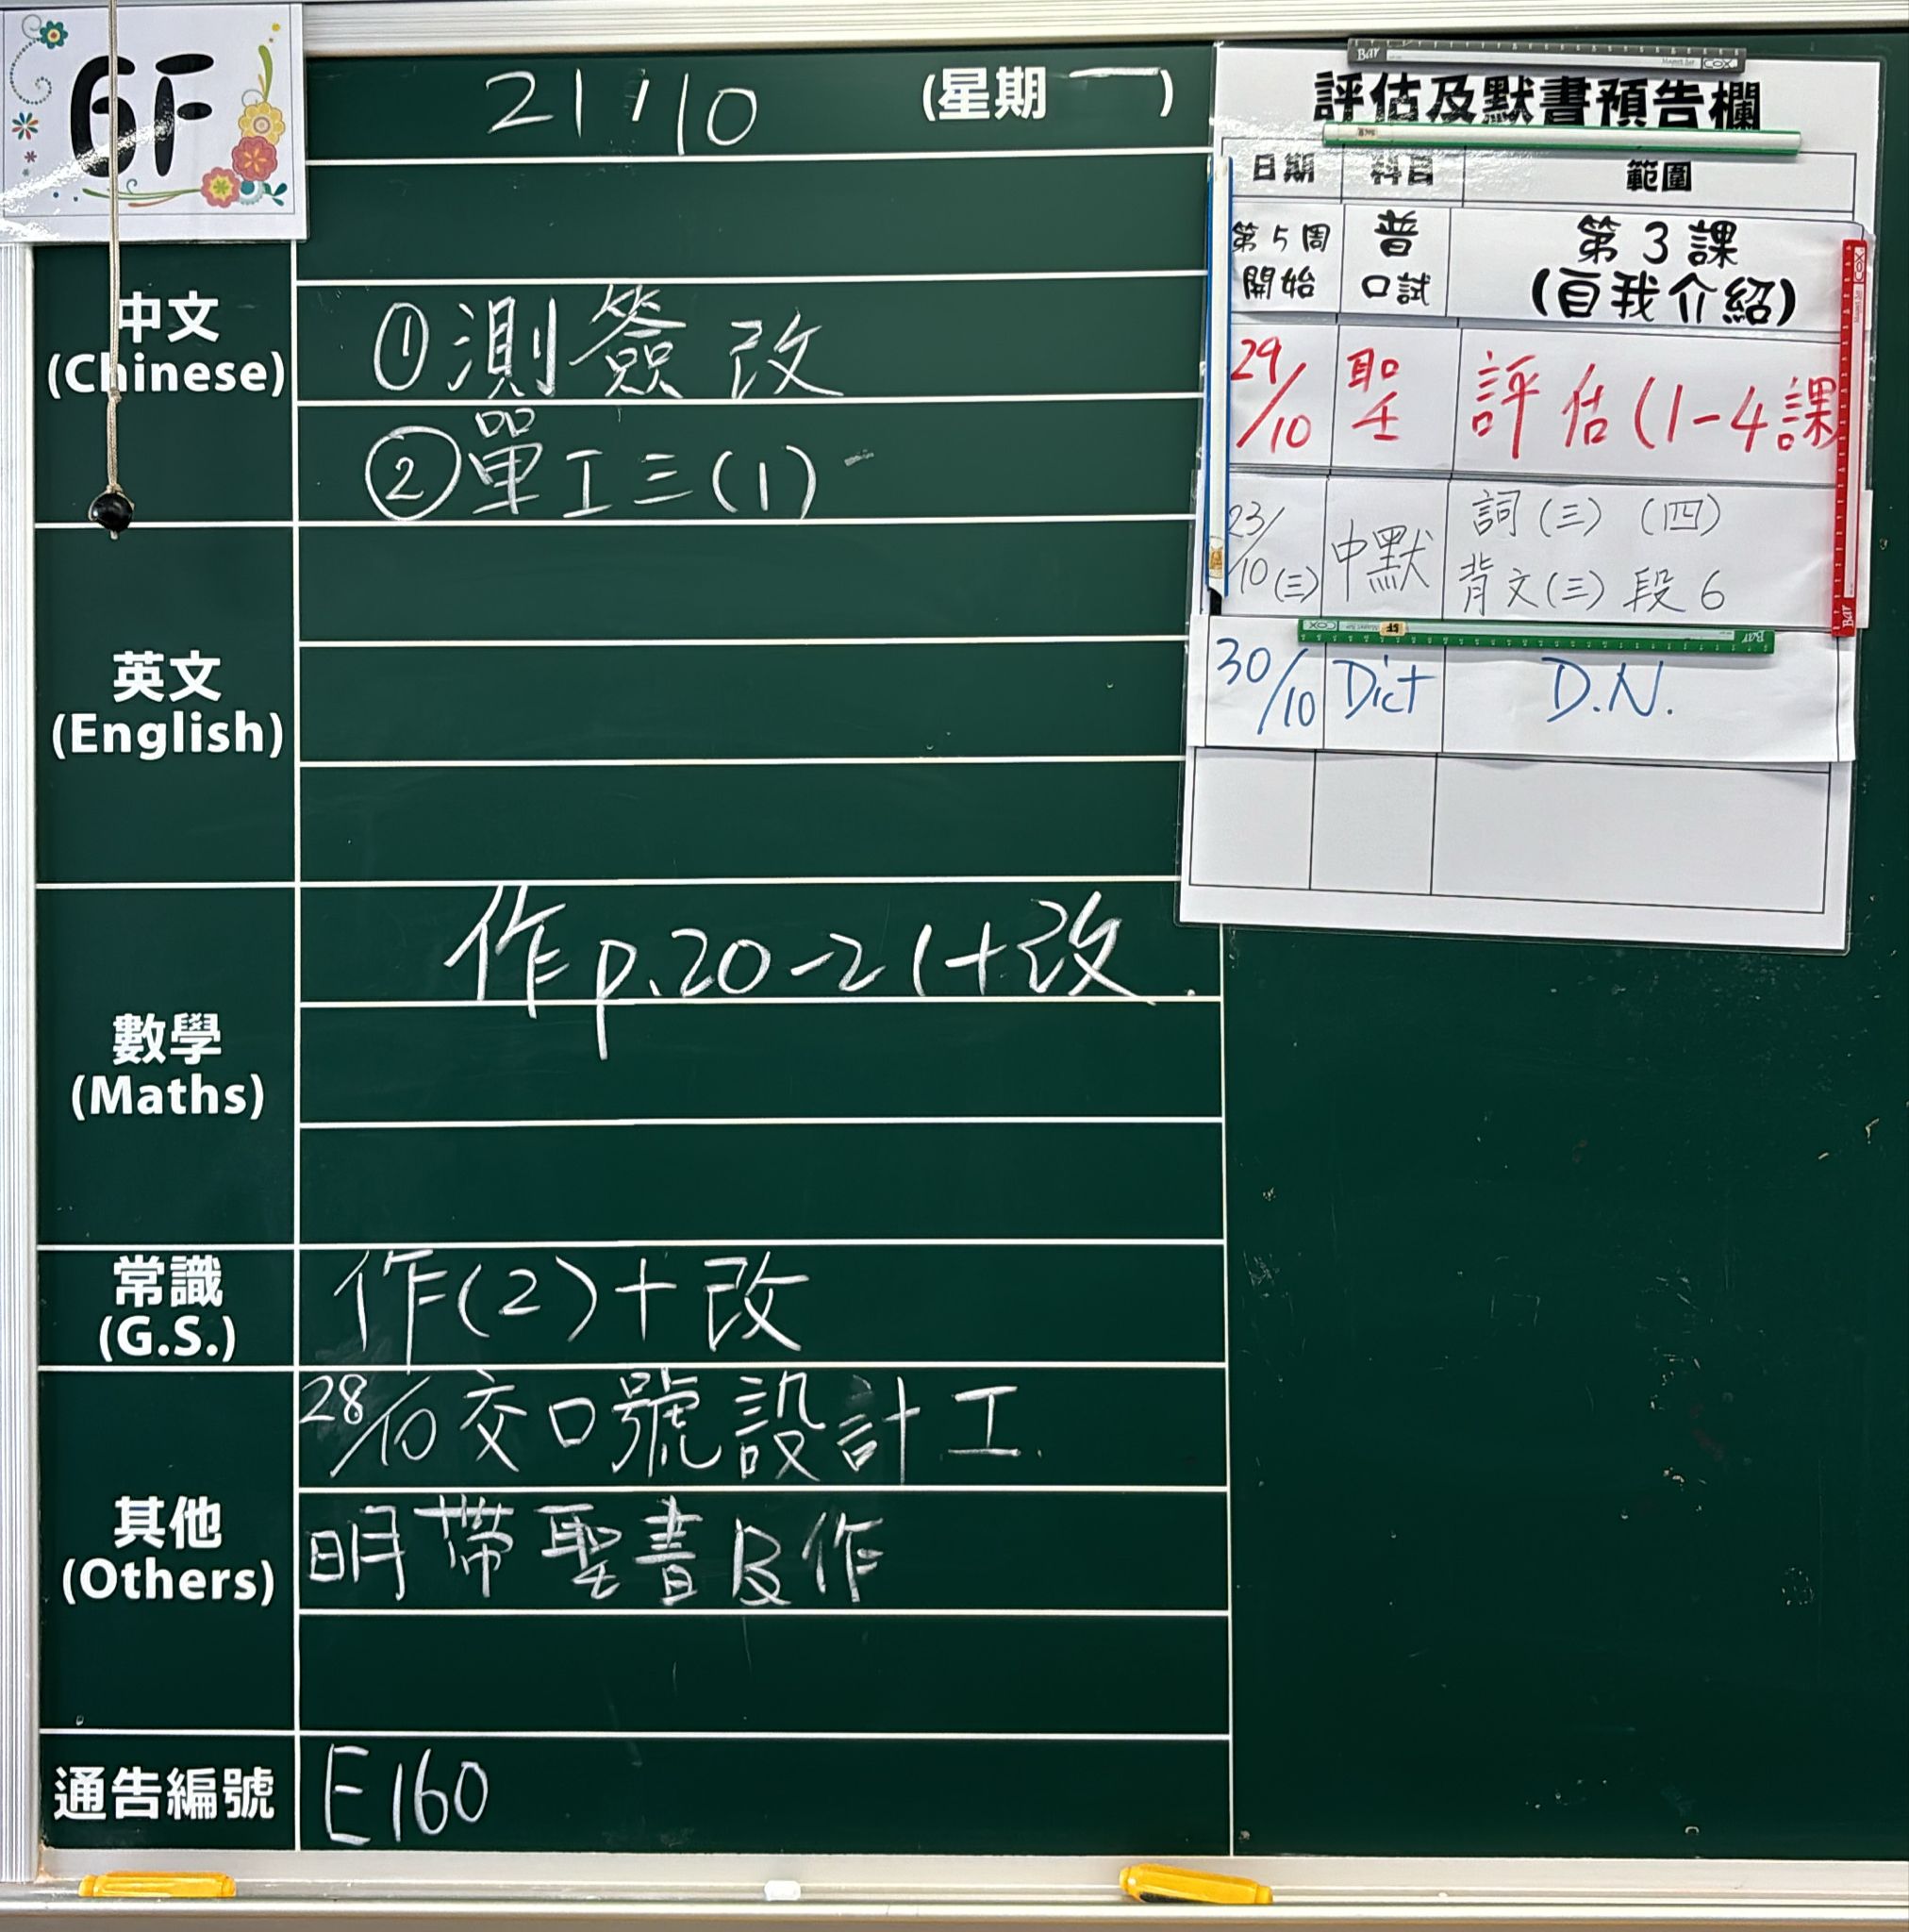 6F
21/10 (星期一)
中文
(Chinese)
①測簽改
②單工三(1)
英文
(English)
數學
(Maths)
作p.20-21+改.
常識
(G.S.)
作(2)+改
其他
(Others)
28/10交口號設計工.
明帶聖書及作
通告編號
E160
評估及默書預告欄
日期 科目 範圍
第5周開始 普口試 第3課(自我介紹)
29/10 聖 評估(1-4課
23/10(三) 中默 詞(三)(四)
背文(三)段6
30/10 Dict D.N.